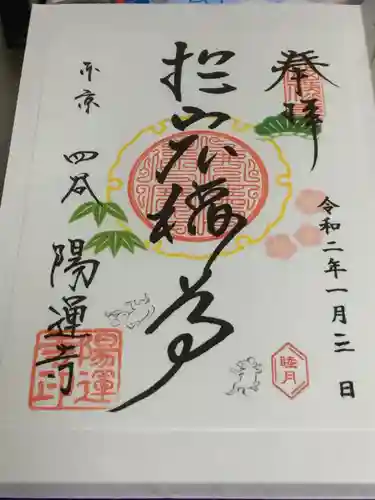 奉拝
令和二年一月三日
睦月
於岩稲荷
東京 四谷 陽運寺
陽運
寺印